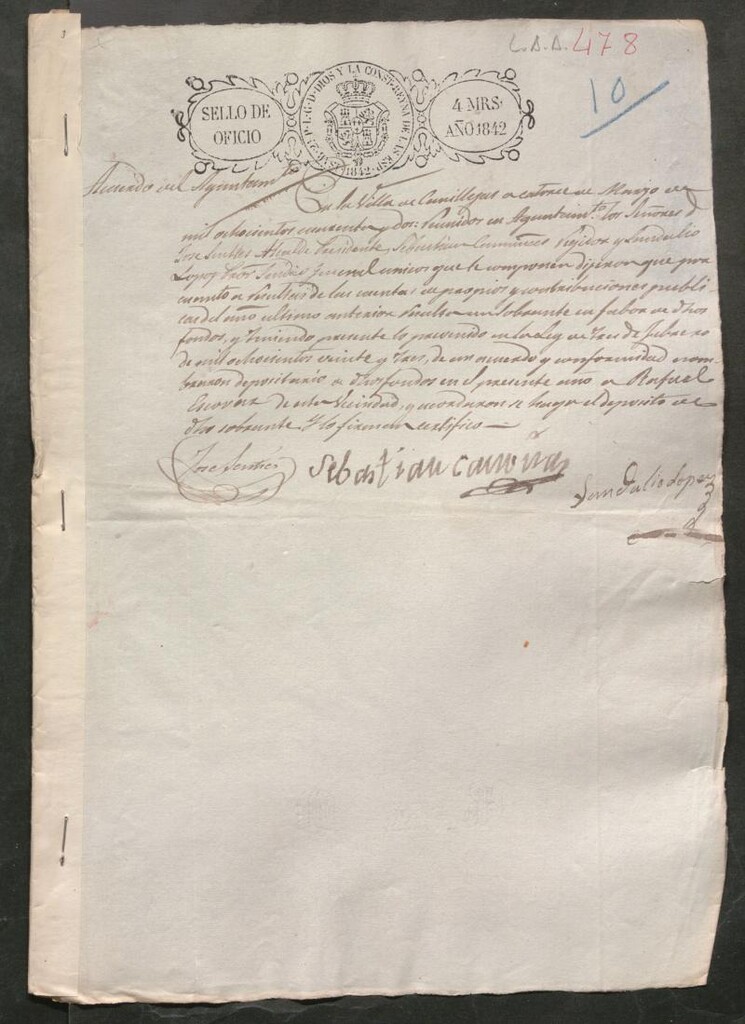 L.A.A. 478
10
SELLO DE
OFICIO
YSAB. 2ª P. L. G. D. DIOS Y LA CONST. REYNA DE LAS ESP. 1842
4 MRS.
AÑO 1842
Acuerdo del Ayuntamto
En la Villa de Canillejas a catorce de Marzo de
mil ochocientos cuarenta y dos: Reunidos en Ayuntamto los Señores Dn
Jose Alcalde Presidente, Sebastian Regidor y Sandalio
Lopez Procr Sindico Jeneral unicos que le componen dijeron que por
cuanto a resultas de las cuentas de propios y contribuciones publi
cas del año ultimo anterior resulta un sobrante en fabor de dhos
fondos, y teniendo presente lo prevenido en la Ley de tres de febrero
de mil ochocientos veinte y tres, de un acuerdo y conformidad nom
braron depositario de dhos fondos en el presente año a Rafael
Escovar de esta Vecindad, y acordaron se haga el deposito de
dho sobrante Y lo firman certifico
Jose
Sebastian
Sandalio Lopez